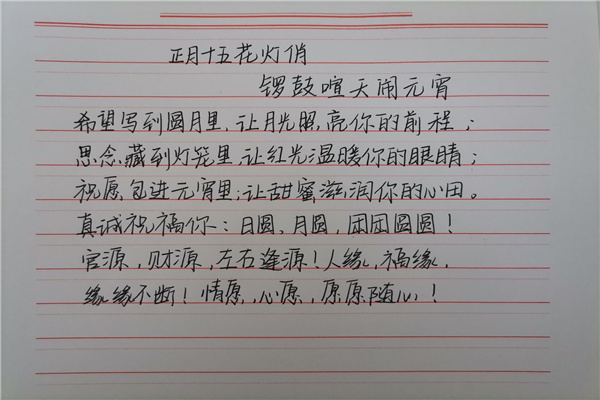 正月十五花灯俏
锣鼓喧天闹元宵
希望写到圆月里,让月光照亮你的前程;
思念藏到灯笼里,让红光温暖你的眼睛;
祝愿包进元宵里;让甜蜜滋润你的心田。
真诚祝福你:日圆、月圆,团团圆圆!
官源,财源,左右逢源!人缘,福缘,
缘缘不断!情愿,心愿,愿愿随心!